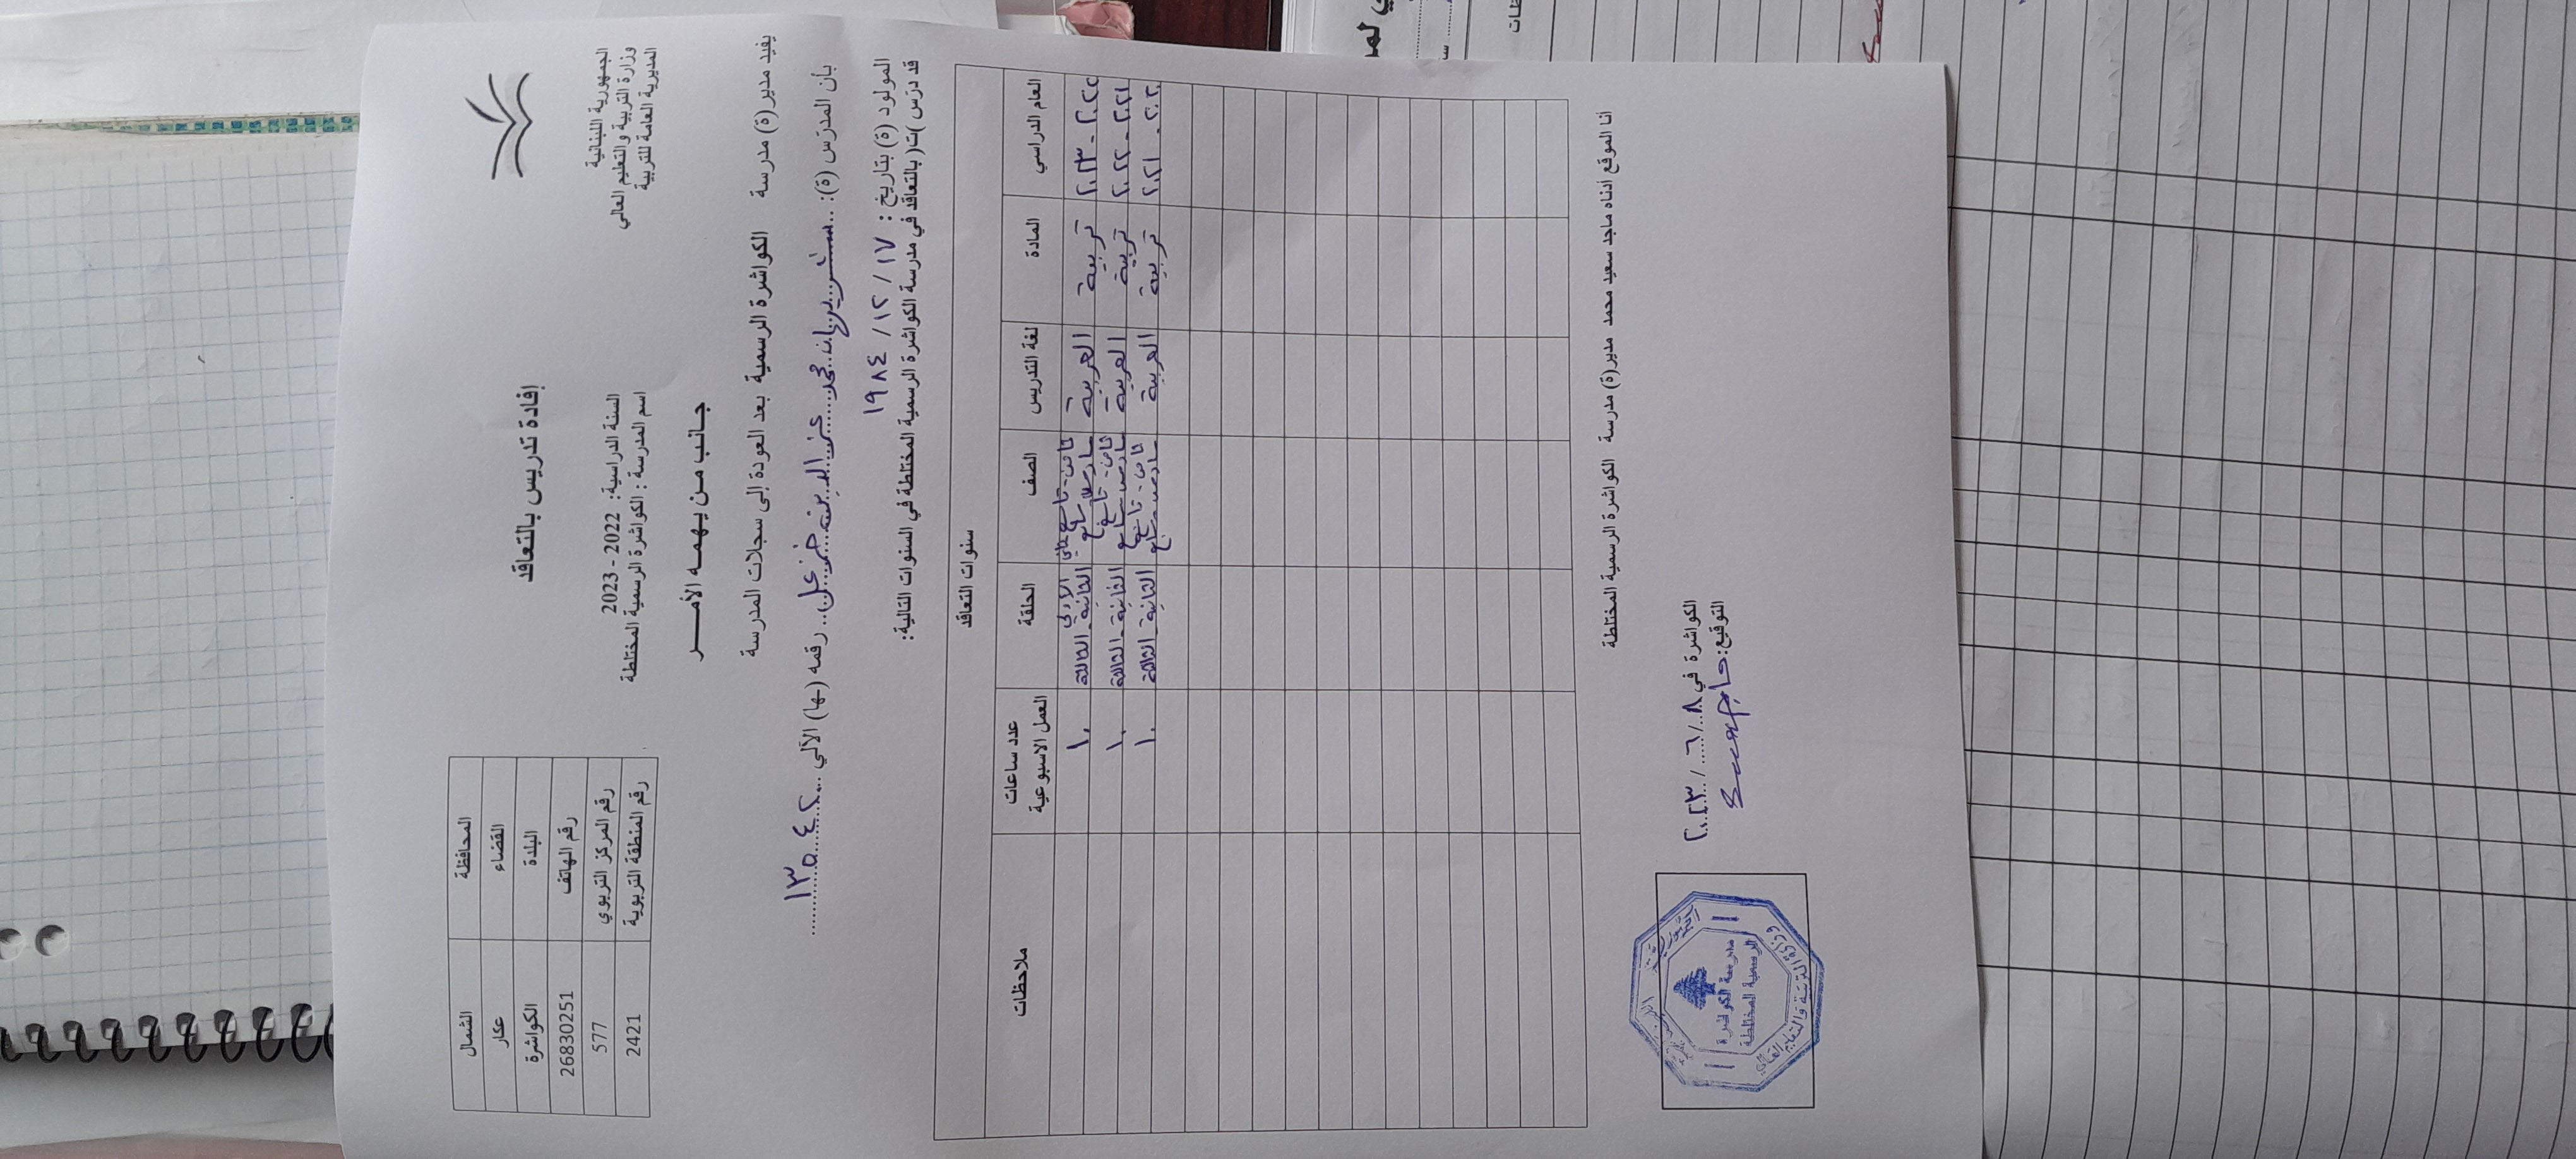 الجمهورية اللبنانية
وزارة التربية والتعليم العالي
المديرية العامة للتربية
إفادة تدريس بالتعاقد
السنة الدراسية: 2022 - 2023
اسم المدرسة : الكواشرة الرسمية المختلطة
المحافظة الشمال
القضاء عكار
البلدة الكواشرة
رقم الهاتف 26830251
رقم المركز التربوي 577
رقم المنطقة التربوية 2421
جانب من يهمه الأمر
يفيد مدير(ة) مدرسة الكواشرة الرسمية بعد العودة إلى سجلات المدرسة
بأن المدرّس (ة): شريهان محمد عز الدين خضر علي رقمه (بها) الآلي ١٣٥٠٤٢
المولود (ة) بتاريخ : ١٧ / ١٢ / ١٩٨٤
قد درّس )ت( بالتعاقد في مدرسة الكواشرة الرسمية المختلطة في السنوات التالية:
سنوات التعاقد
العام الدراسي المادة لغة التدريس الصف الحلقة عدد ساعات العمل الاسبوعية ملاحظات
٢٠٢٢ - ٢٠٢٣ تربية العربية ثامن - تاسع سادس سابع الأولى الثانية - الثالثة ١٠
٢٠٢١ - ٢٠٢٢ تربية العربية ثامن - تاسع سادس سابع الثانية - الثالثة ١٠
٢٠٢٠ - ٢٠٢١ تربية العربية ثامن - تاسع سادس سابع الثانية - الثالثة ١٠
أنا الموقع أدناه ماجد سعيد محمد مدير(ة) مدرسة الكواشرة الرسمية المختلطة
الكواشرة في ٨ / ٦ / ٢٠٢٣
التوقيع:
الجمهورية اللبنانية
مدرسة الكواشرة
الرسمية المختلطة
وزارة التربية والتعليم العالي